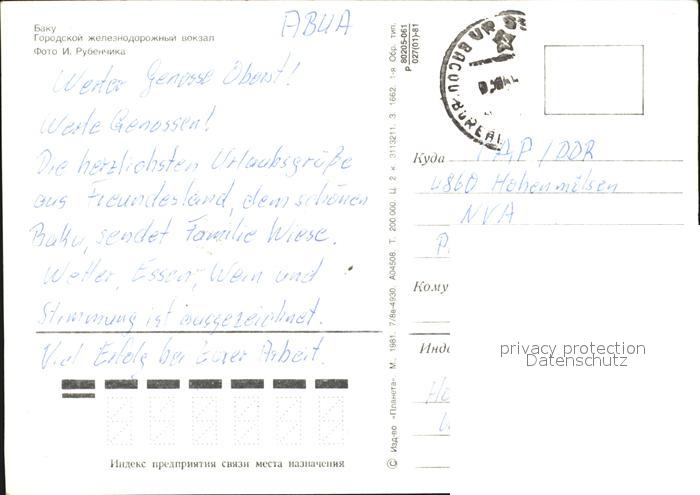 Баку
Городской железнодорожный вокзал
Фото И. Рубенчика
АВИА
Werter Genosse Oberst!
Werte Genossen!
Die herzlichsten Urlaubsgrüße
aus Freundesland, dem schönen
Baku, sendet Familie Wiese.
Wetter, Essen, Wein und
Stimmung ist ausgezeichnet.
Viel Erfolg bei Eurer Arbeit.
Индекс предприятия связи места назначения
© Изд-во «Планета». М., 1981. 7/8а-4930. А04508. Т. 200 000. Ц. 2 к. 3113211. З. 1662. 1-я Обр. тип.
Р 80205-061
027(01)-81
BACOU BUREAU
Куда ГДР / DDR
4860 Hohenmölsen
NVA
P
Кому
Инде
privacy protection
Datenschutz